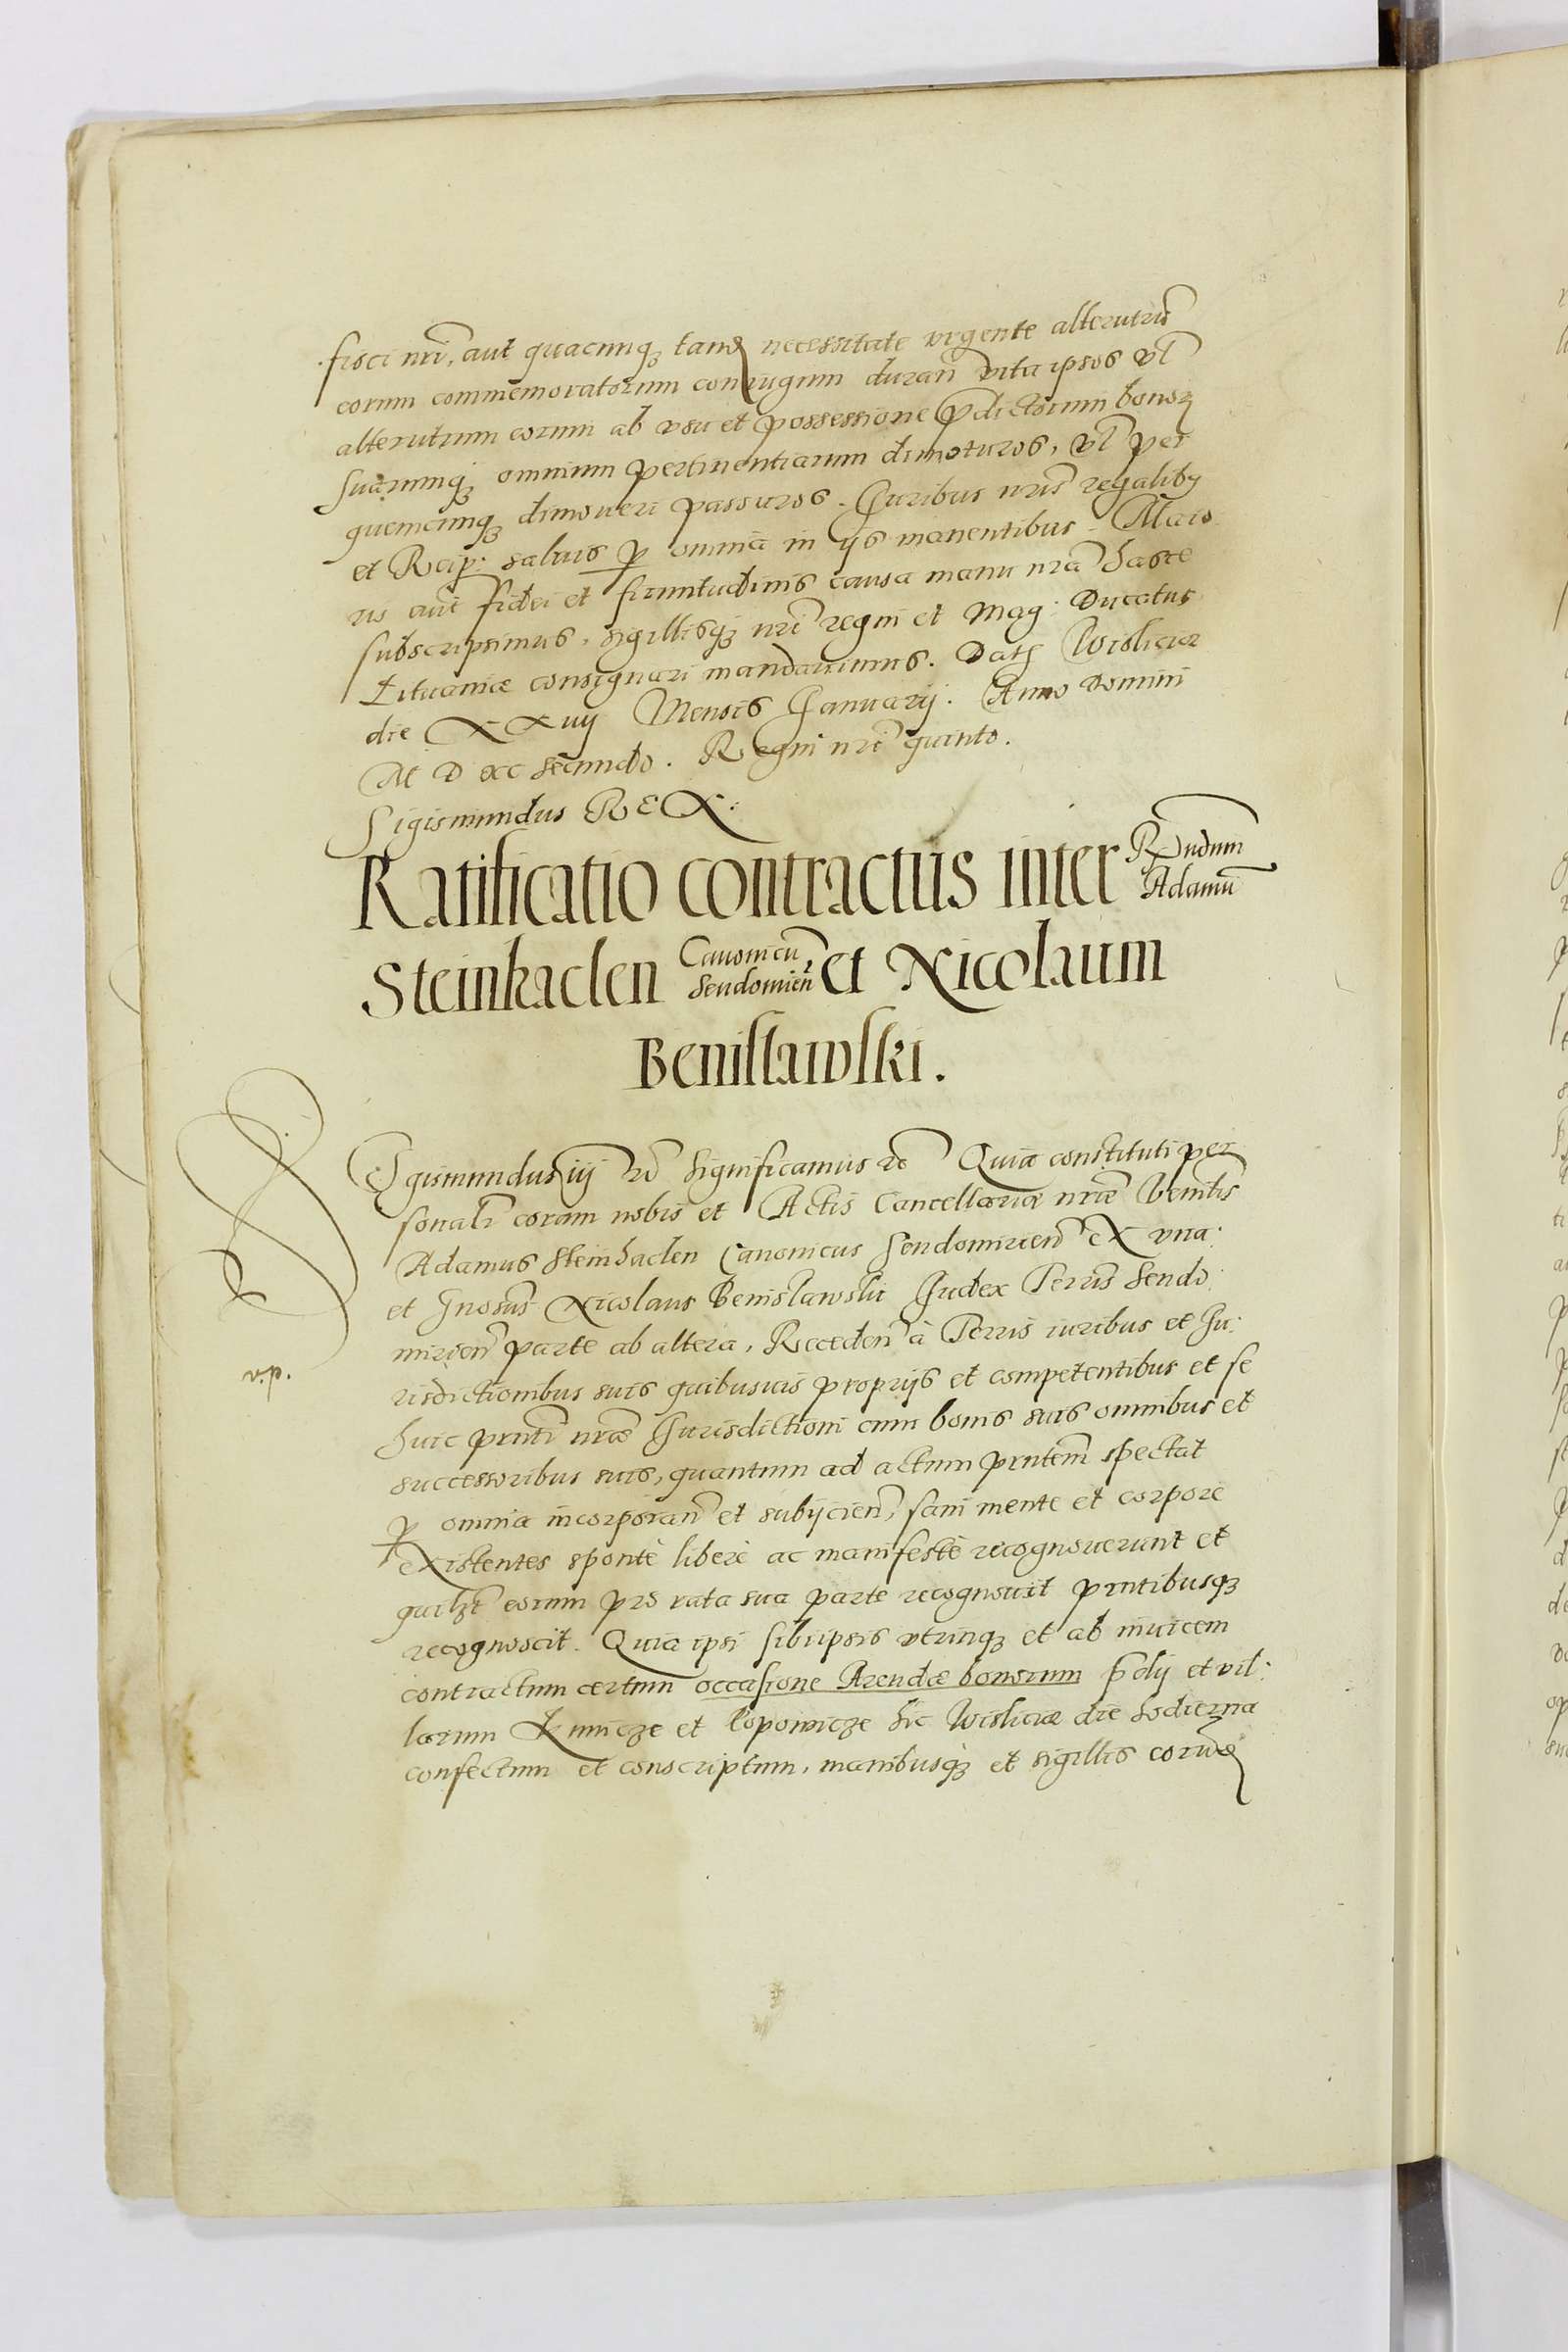 fisci nrī, aut quacunqꝫ tandē necessitate vrgente alterutrū
eorum commemoratorum coniugum duran̄ vita ipsos vl̄
alterutrum eorum ab vsu et possessione p̄dictorum bonoꝝ
suarumqꝫ omnium pertinentiarum dimoturos, vl̄ per
quemcunqꝫ dimoueri passuros. Iuribus nrīs regalibꝯ
et Reip: saluis ꝑ omnia in ijs manentibus. Maio
ris aūt fidei et firmitudinis causa manu nrā hasce
subscripsimus, sigillisqꝫ nrī regni et Mag: Ducatus
Lituaniæ consignari mandauimus. Datꝫ Wisliciæ
die XXvij Mensis Ianuarij. Anno Domini
M D xc secundo. Regni nrī quinto.
Sigismundus REX.
Ratificatio contractus inter Rndum Adamū
Steinhaclen Canonicū Sendomien̄ et Nicolaum
Benislawski.
Sigismundus iij etc̄ Significamus etc̄ Quia constituti per
sonalr̄ coram nobis et Actis Cancellariæ nrǣ Venlis
Adamus Steinhaclen Canonicus Sendomirien̄ ex vna
et Gnosus Nicolaus Benislawski Iudex Terrīs Sendo:
mirien̄ parte ab altera, Receden̄ à Terrīs iuribus et Iu:
risdictionibus suis quibusuis proprijs et competentibus et se
huic prnti nrǣ Iurisdictioni cum bonis suis omnibus et
successoribus suis, quantum ad actum prntem̄ spectat
ꝑ omnia incorporan̄ et subijcien̄, sani mente et corpore
existentes spontè liberè ac manifestè recognouerunt et
quilꝫt eorum pro rata sua parte recognouit prntibusqꝫ
recognoscit. Quia ipsi sibiipsis vtrinqꝫ et ab inuicem
contractum certum occasione Arendæ bonorum p̄dij et vil:
larum Lunicze et Coponicze hic Wisliciæ die hodierna
confectum et conscriptum, manibusqꝫ et sigillis eorundē
v.p.